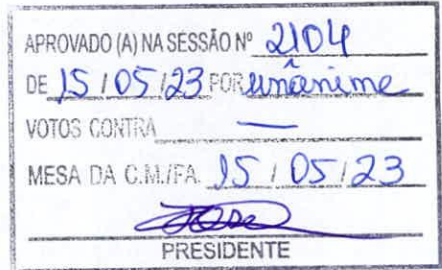 APROVADO (A) NA SESSÃO Nº 2104
DE 15/05/23 POR unânime
VOTOS CONTRA —
MESA DA C.M./FA. 15/05/23
PRESIDENTE